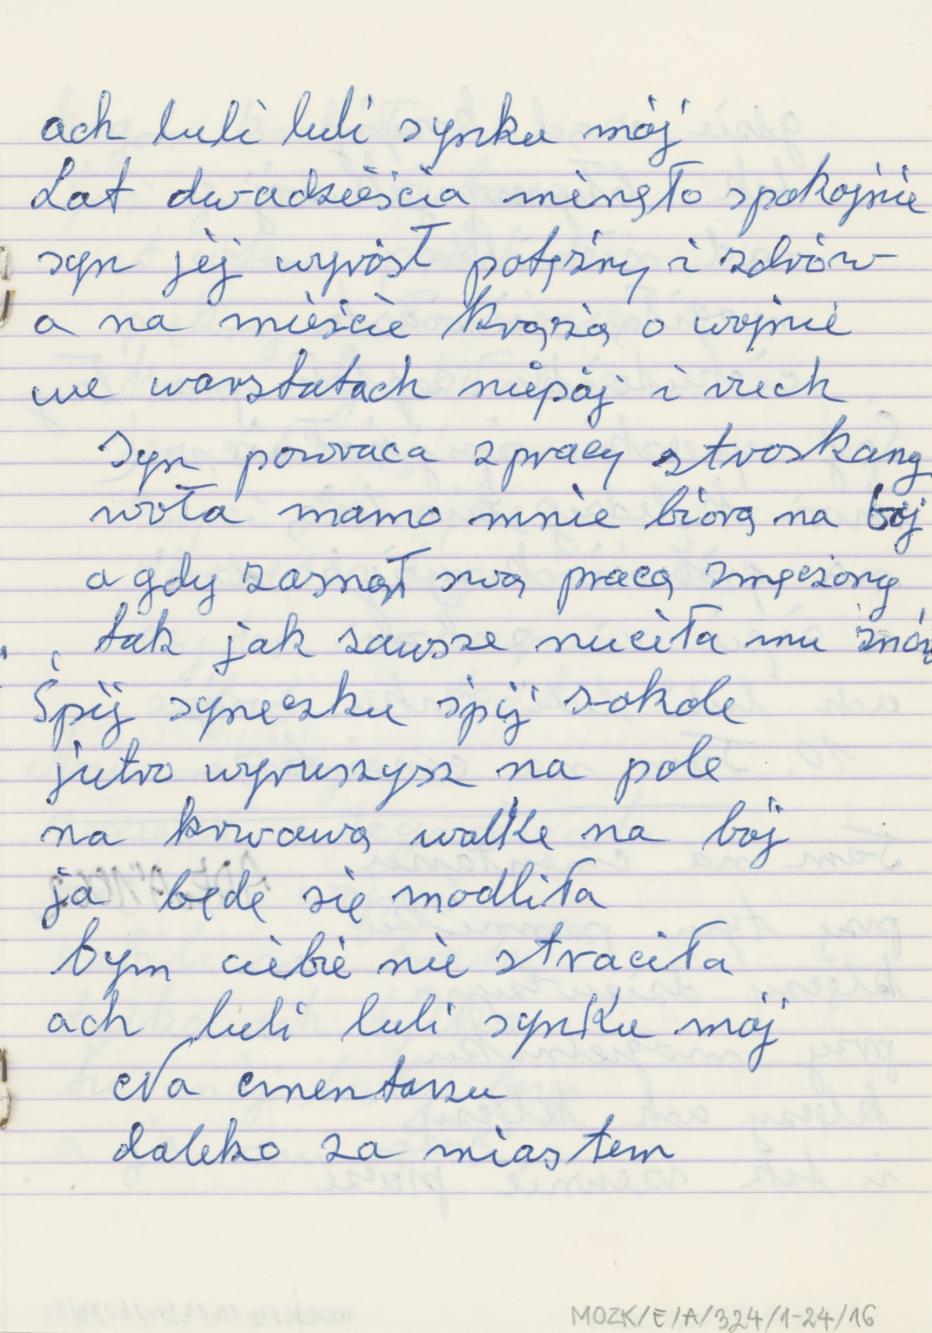 ach luli luli synku mój
Lat dwadzieścia minęło spokojnie
syn jej wyrósł potężny i zdrów
a na mieście krążą o wojnie
we warstatach niepój i ruch
Syn powraca z pracy stroskany
woła mamo mnie biorą na bój
a gdy zasnął swą pracą zmęczony
tak jak zawsze nuciła mu znów
Śpij syneczku śpij sokole
jutro wyruszysz na pole
na krwawą walke na bój
ja będę się modliła
bym ciebie nie straciła
ach luli luli synku mój
Na cmentarzu
daleko za miastem
MOZK/E/A/324/1-24/16